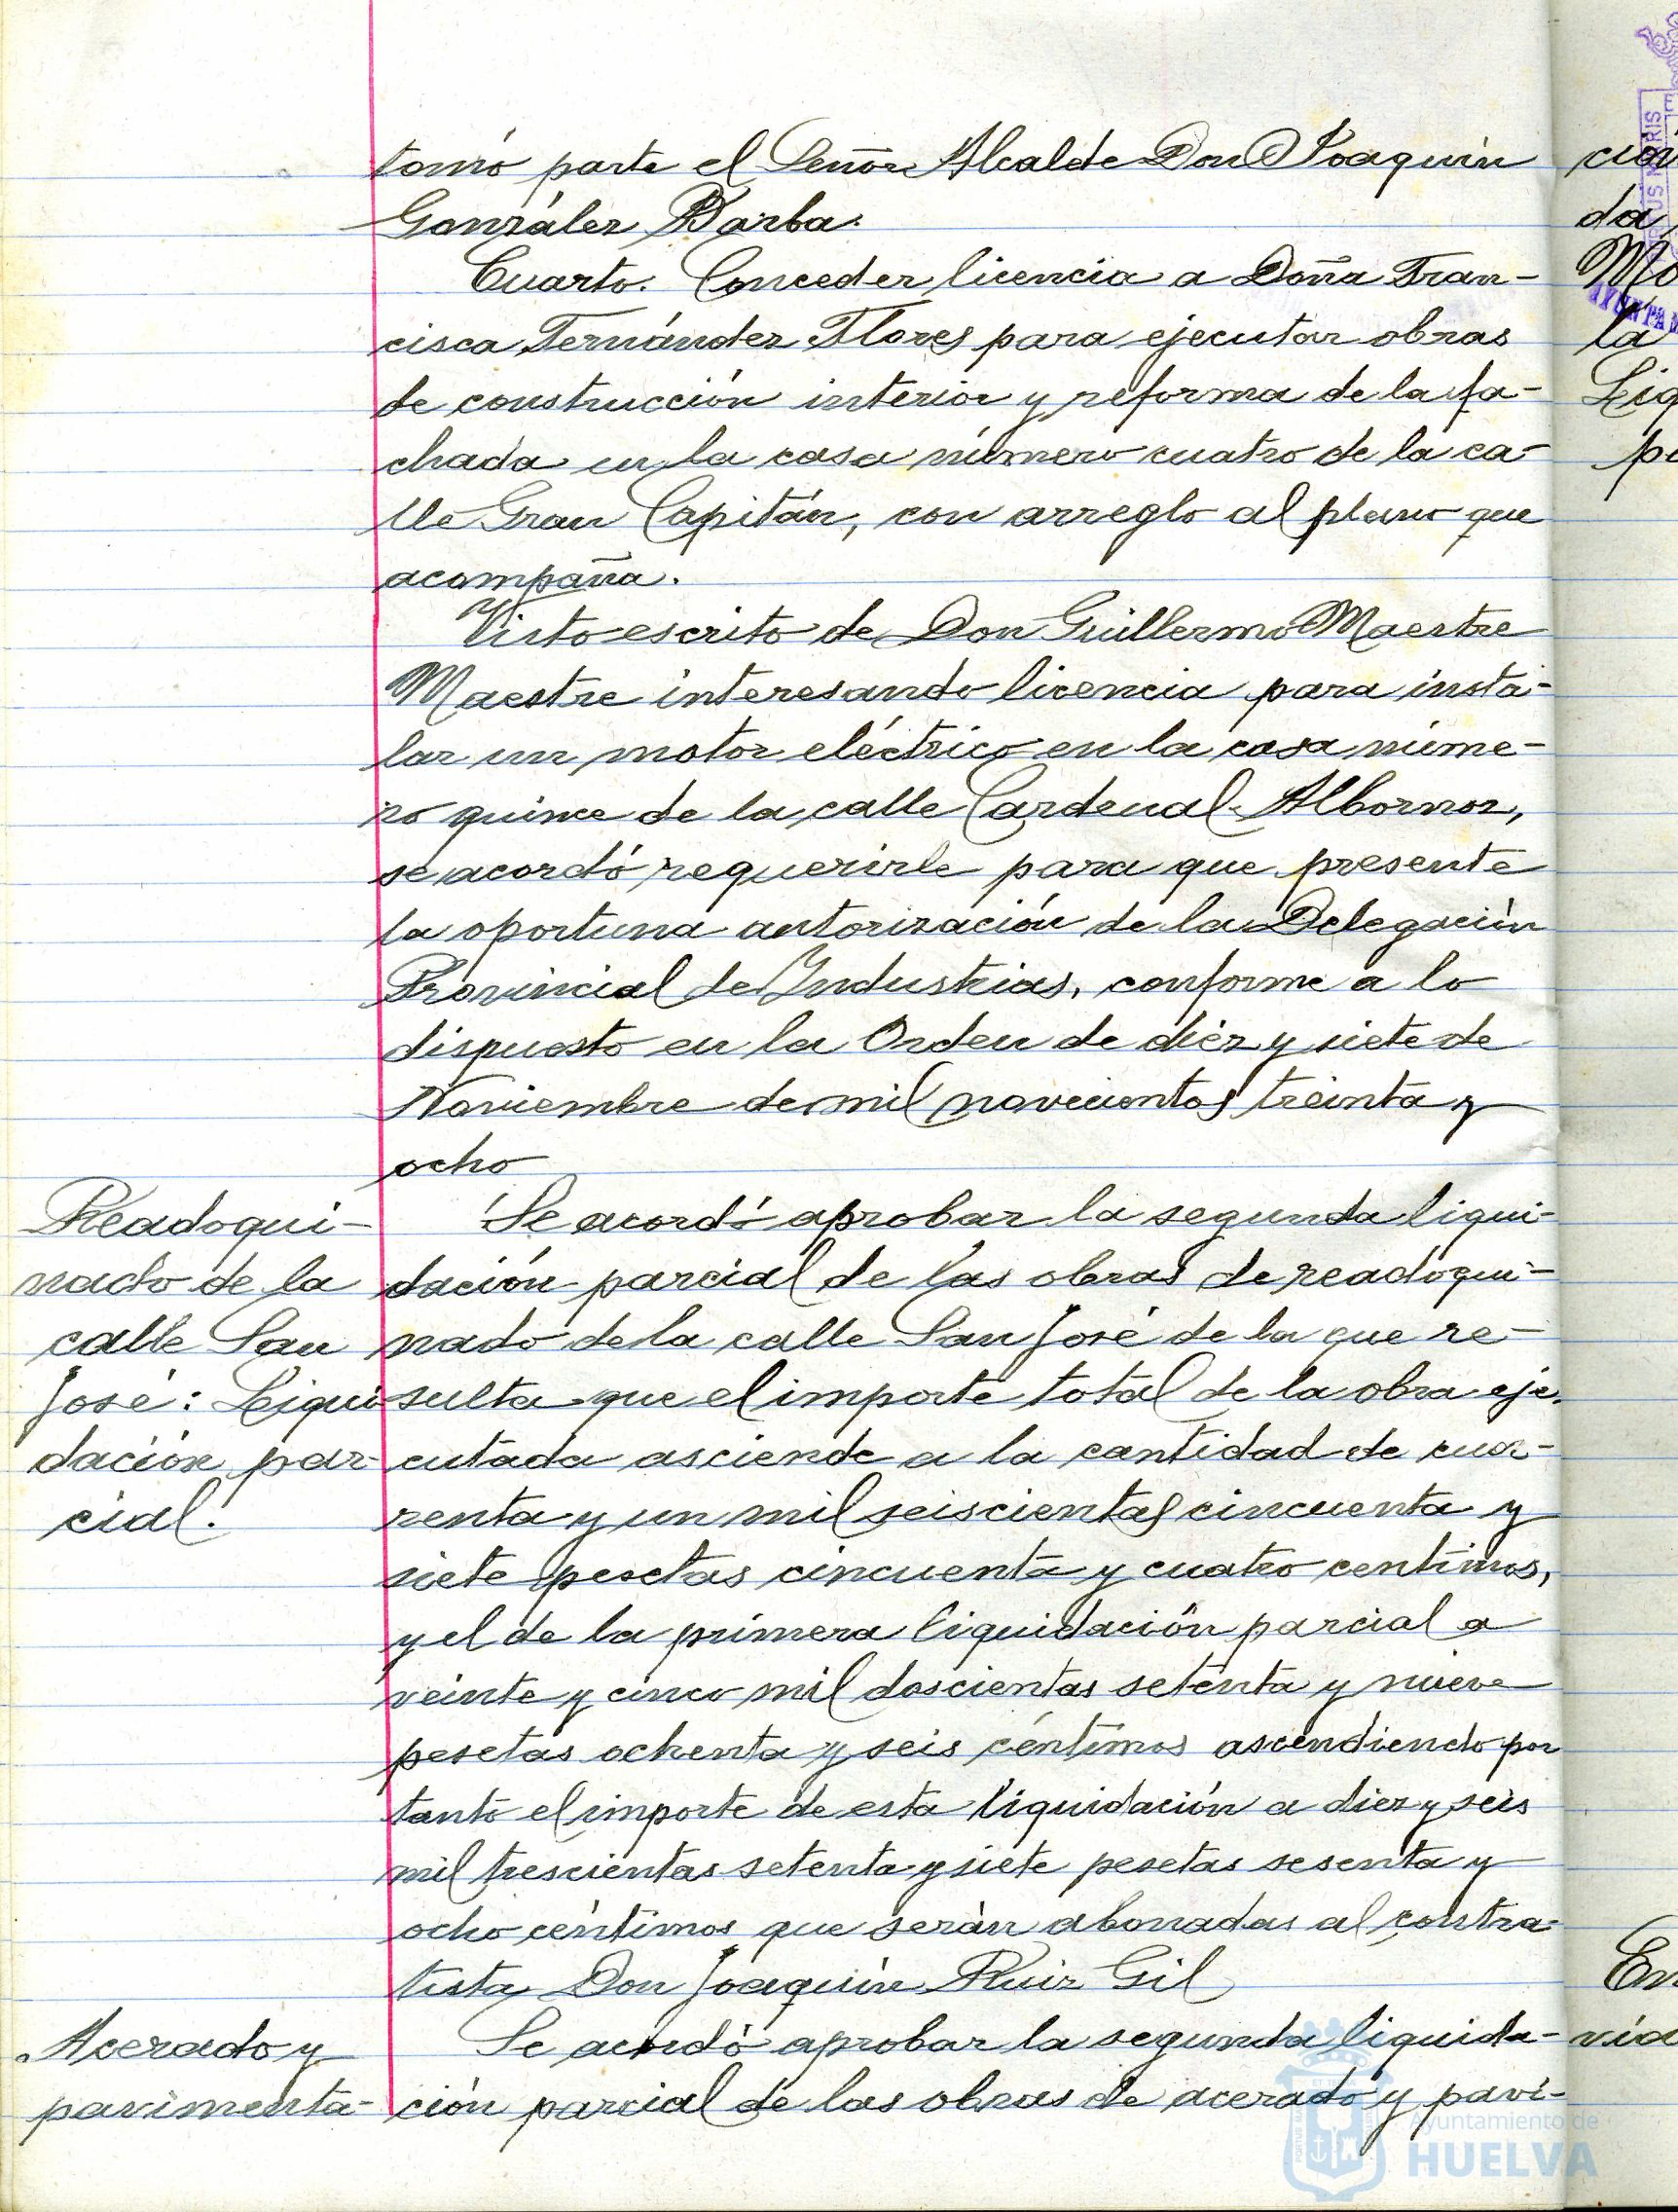 tomó parte el Señor Alcalde Don Joaquín
González Barba.
Cuarto. Conceder licencia a Doña Fran-
cisca Fernández Flores para ejecutar obras
de construcción interior y reforma de la fa-
chada en la casa número cuatro de la ca-
lle Gran Capitán, con arreglo al plano que
acompaña.
Visto escrito de Don Guillermo Maestre
Maestre interesando licencia para insta-
lar un motor eléctrico en la casa núme-
ro quince de la calle Cardenal Albornoz,
se acordó requerirle para que presente
la oportuna autorización de la Delegación
Provincial de Industrias, conforme a lo
dispuesto en la Orden de diez y siete de
Noviembre de mil novecientos treinta y
ocho
Readoqui-
nado de la
calle San
José: Liqui
dación par-
cial.
Se acordó aprobar la segunda liqui-
dación parcial de las obras de readoqui-
nado de la calle San José de la que re-
sulta que el importe total de la obra eje-
cutada asciende a la cantidad de cua-
renta y un mil seiscientas cincuenta y
siete pesetas cincuenta y cuatro centimos,
y el de la primera liquidación parcial a
veinte y cinco mil doscientas setenta y nueve
pesetas ochenta y seis céntimos ascendiendo por
tanto el importe de esta liquidación a diez y seis
mil trescientas setenta y siete pesetas sesenta y
ocho céntimos que serán abonadas al contra-
tista Don Joaquín Ruiz Gil
Acerado y
pavimenta-
Se acordó aprobar la segunda liquida-
ción parcial de las obras de acerado y pavi-
Ayuntamiento de
HUELVA